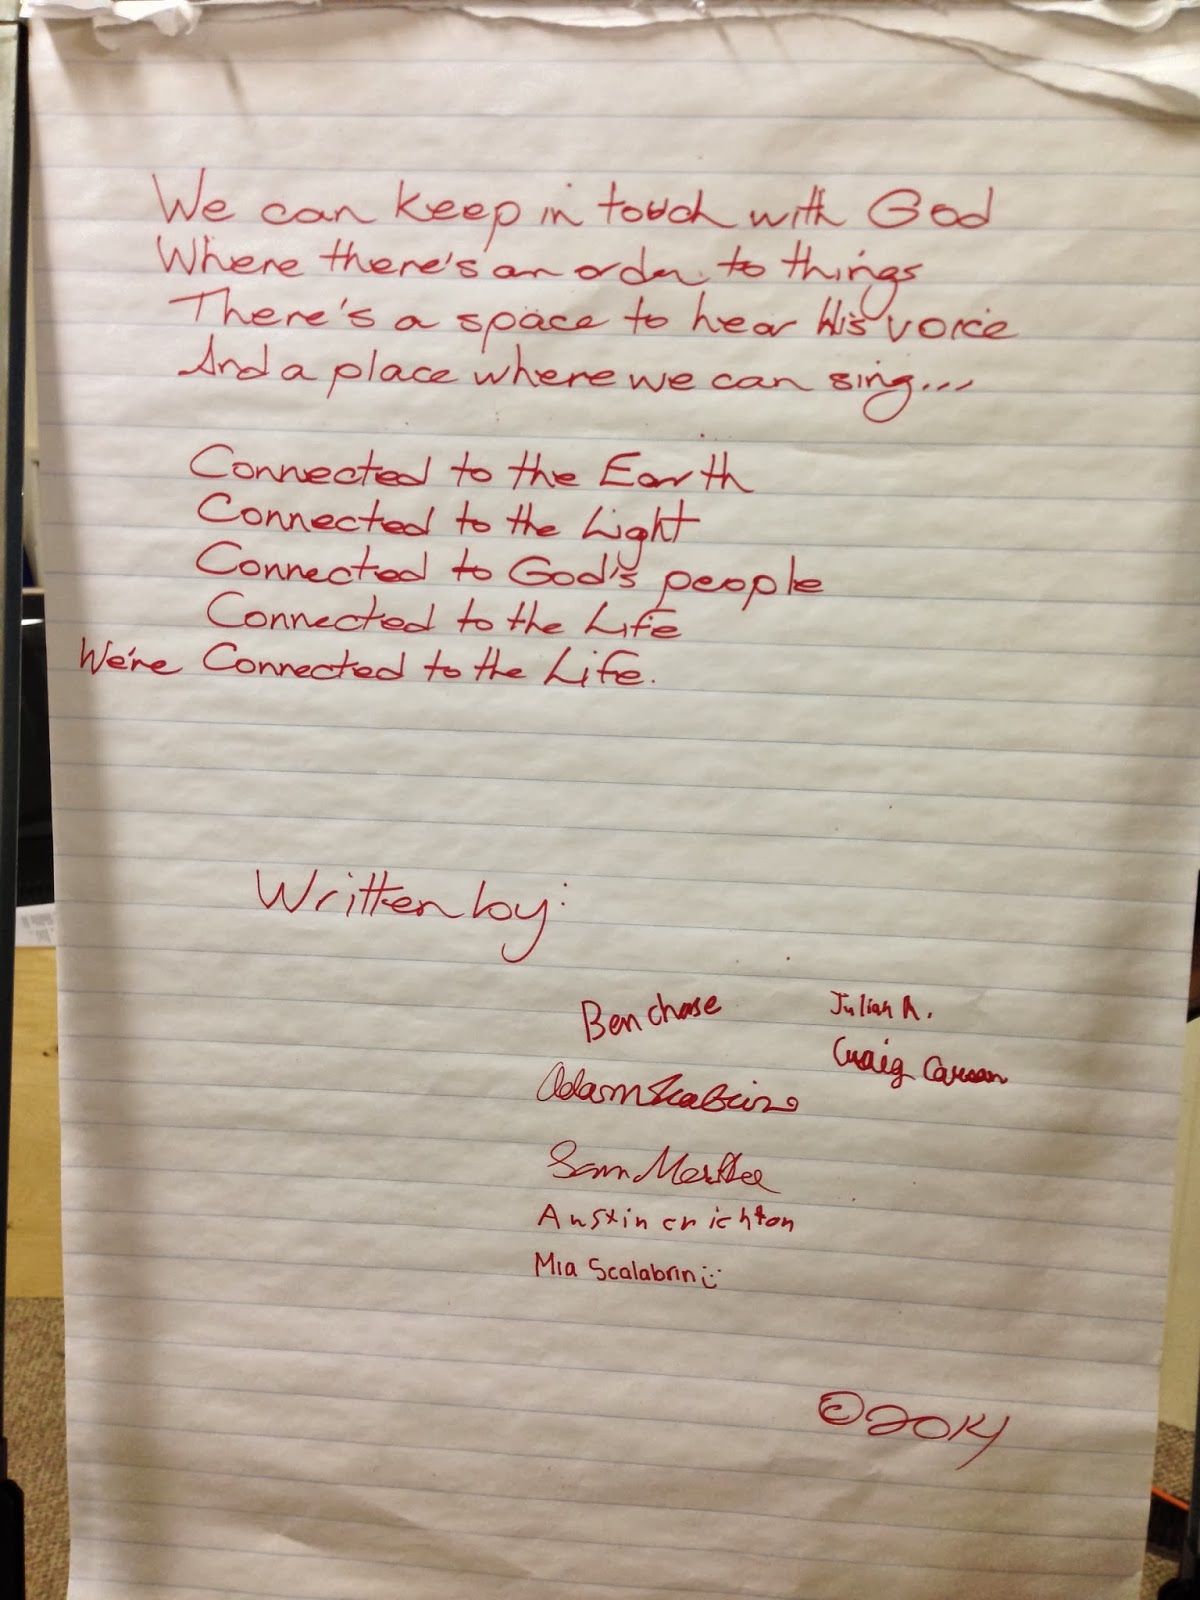 We can keep in touch with God
Where there's an order to things
There's a space to hear His voice
And a place where we can sing...
Connected to the Earth
Connected to the Light
Connected to God's people
Connected to the Life
We're Connected to the Life.
Written by:
Ben Chase
Julian A.
Craig Carson
Adam Scalabrino
Sam
Austin crichton
Mia Scalabrini
©2014